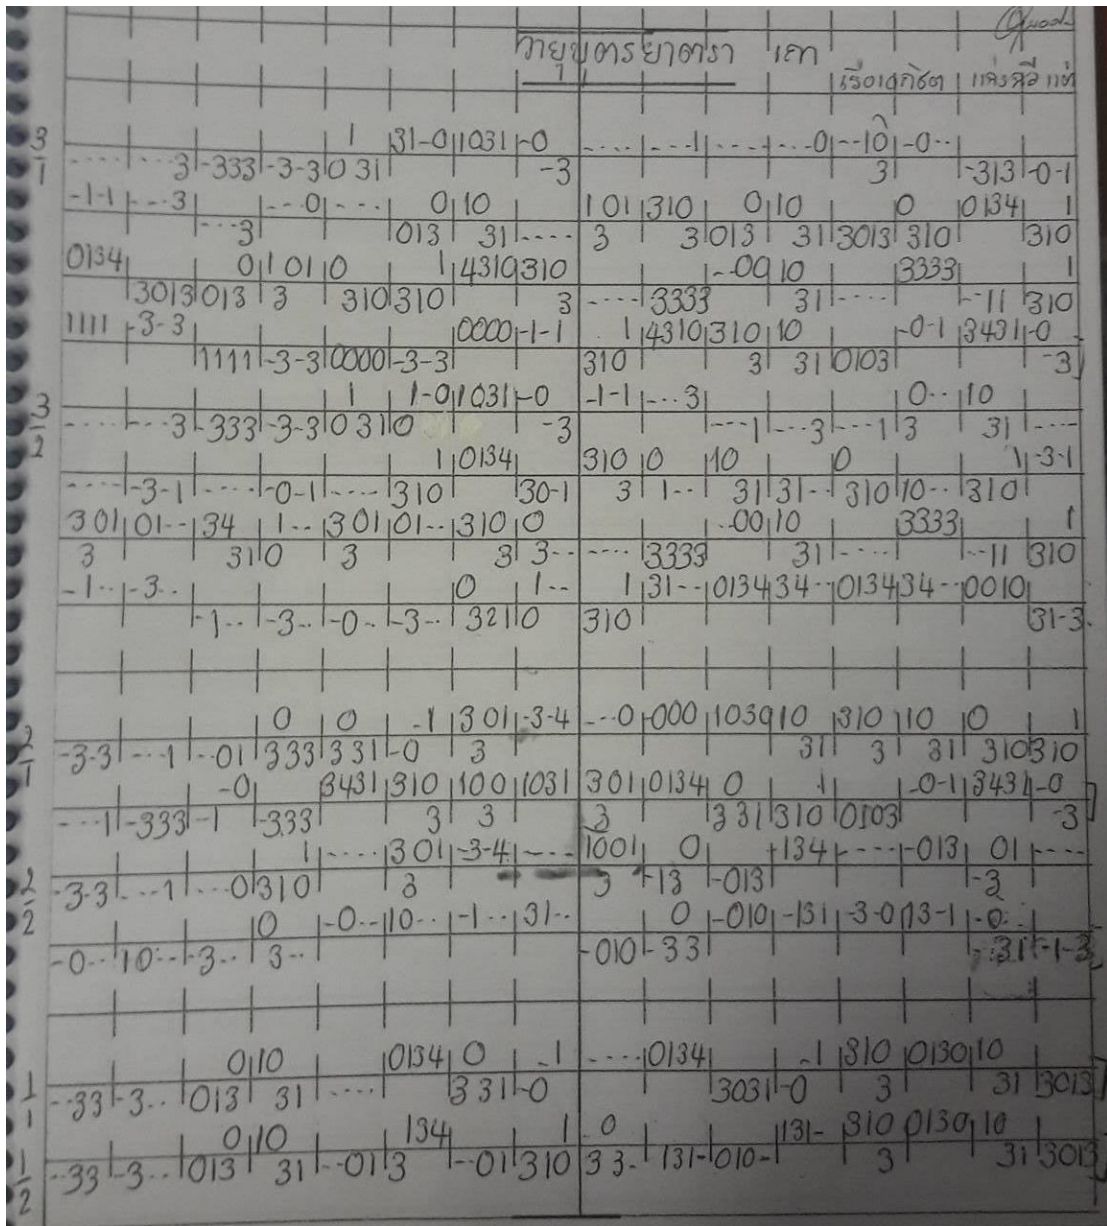 วายุบุตรยาตรา เถา
3/1 1 31-0 1031 -0 ---- ---1 ---- ---0 --10 -0--
---- ---3 -333 -3-3 0 31 -3 3 -313 -0-1
-1-1 ---3 ---0 ---- 0 10 101 310 0 10 0 0134 1
---3 013 31 ---- 3 3 013 31 3013 310 310
0134 0 101 0 1 4310 310 --00 10 3333 1
3013 013 3 310 310 3 ---- 3333 31 ---- --11 310
1111 -3-3 0000 -1-1 1 4310 310 10 -0-1 3431 -0
1111 -3-3 0000 -3-3 310 3 31 0103 -3
3/2 1 1-0 1031 -0 -1-1 ---3 0-- 10
---- ---3 -333 -3-3 0 31 0 -3 ---1 ---3 ---1 3 31 ----
1 0134 310 0 10 0 1 -3-1
---- -3-1 ---- -0-1 ---- 310 30-1 3 1-- 31 31-- 310 10-- 310
301 01-- 34 1-- 301 01-- 310 0 --00 10 3333 1
3 31 0 3 3 3-- ---- 3333 31 ---- --11 310
-1-- -3-- 0 1-- 1 31-- 0134 34-- 0134 34-- 0010
-1-- -3-- -0-- -3-- 321 0 310 31-3
2/1 0 0 -1 301 -3-4 ---0 -000 1030 10 310 10 0 1
-3-3 ---1 --01 333 331 -0 3 31 3 31 310 310
-0 3431 310 100 1031 301 0134 0 1 -0-1 3431 -0
---1 -333 -1 -333 3 3 3 331 310 0103 -3
2/2 1 ---- 301 -3-4 ---- 1001 0 134 ---- -013 01 ----
-3-3 ---1 ---0 310 3 3 -13 -013 -3
0 -0-- 10-- -1-- 31-- 0 -010 -131 -3-0 13-1 -0--
-0-- 10-- -3-- 3-- -010 -33 -31 -1-3
1/1 0 10 0134 0 -1 ---- 0134 -1 310 0130 10
--33 -3-- 013 31 ---- 331 -0 3031 -0 3 31 3013
1/2 0 10 134 1 0 131- 310 0130 10
--33 -3-- 013 31 --01 3 --01 310 33- 131- 010- 3 31 3013